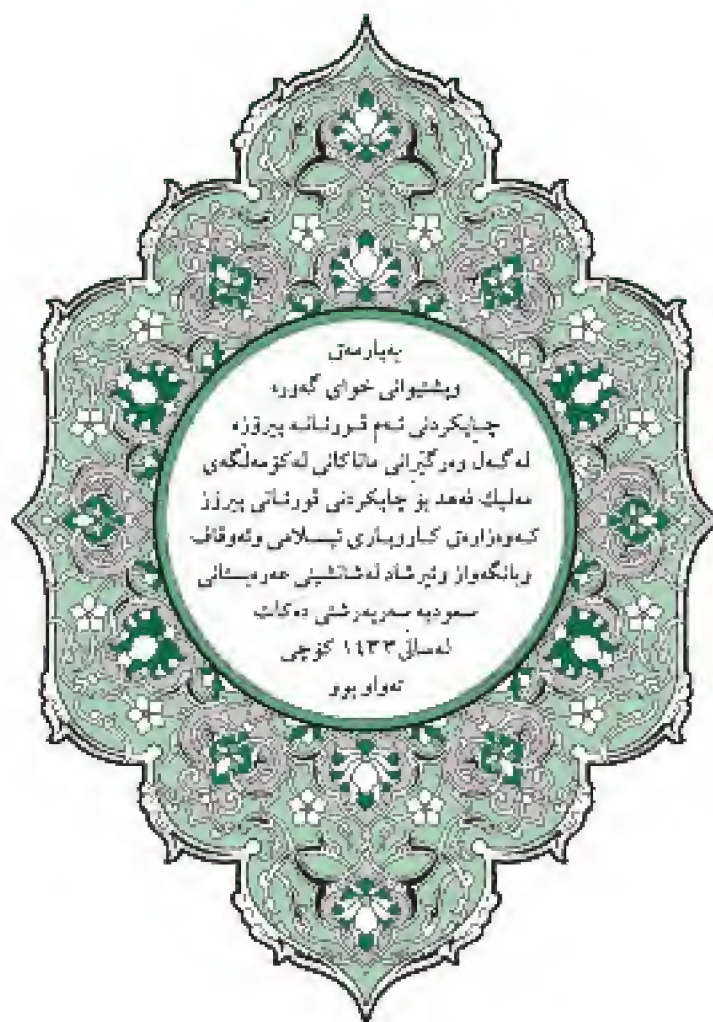 بەیارمەتی
وپشتیوانی خوای گەورە
چاپکردنی ئەم قورئانە پیرۆزە
لەگەل وەرگێرانی ماناکانی لەکۆمەڵگەی
مەلیك فەهد بۆ چاپکردنی قورئانی پیرۆز
کەوەزارەتی کاروباری ئیسلامی وئەوقاف
وبانگەواز وئیرشاد لەشانشینی عەرەبستانی
سعودیە سەرپەرشتی دەکات
لەساڵی ١٤٣٣ کۆچی
تەواو بوو